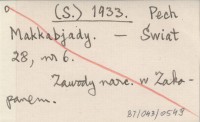 (S.) 1933. Pech
Makkabjady. — Świat
28, nr 6.
Zawody narc. w Zako-
panem.
87/043/0593